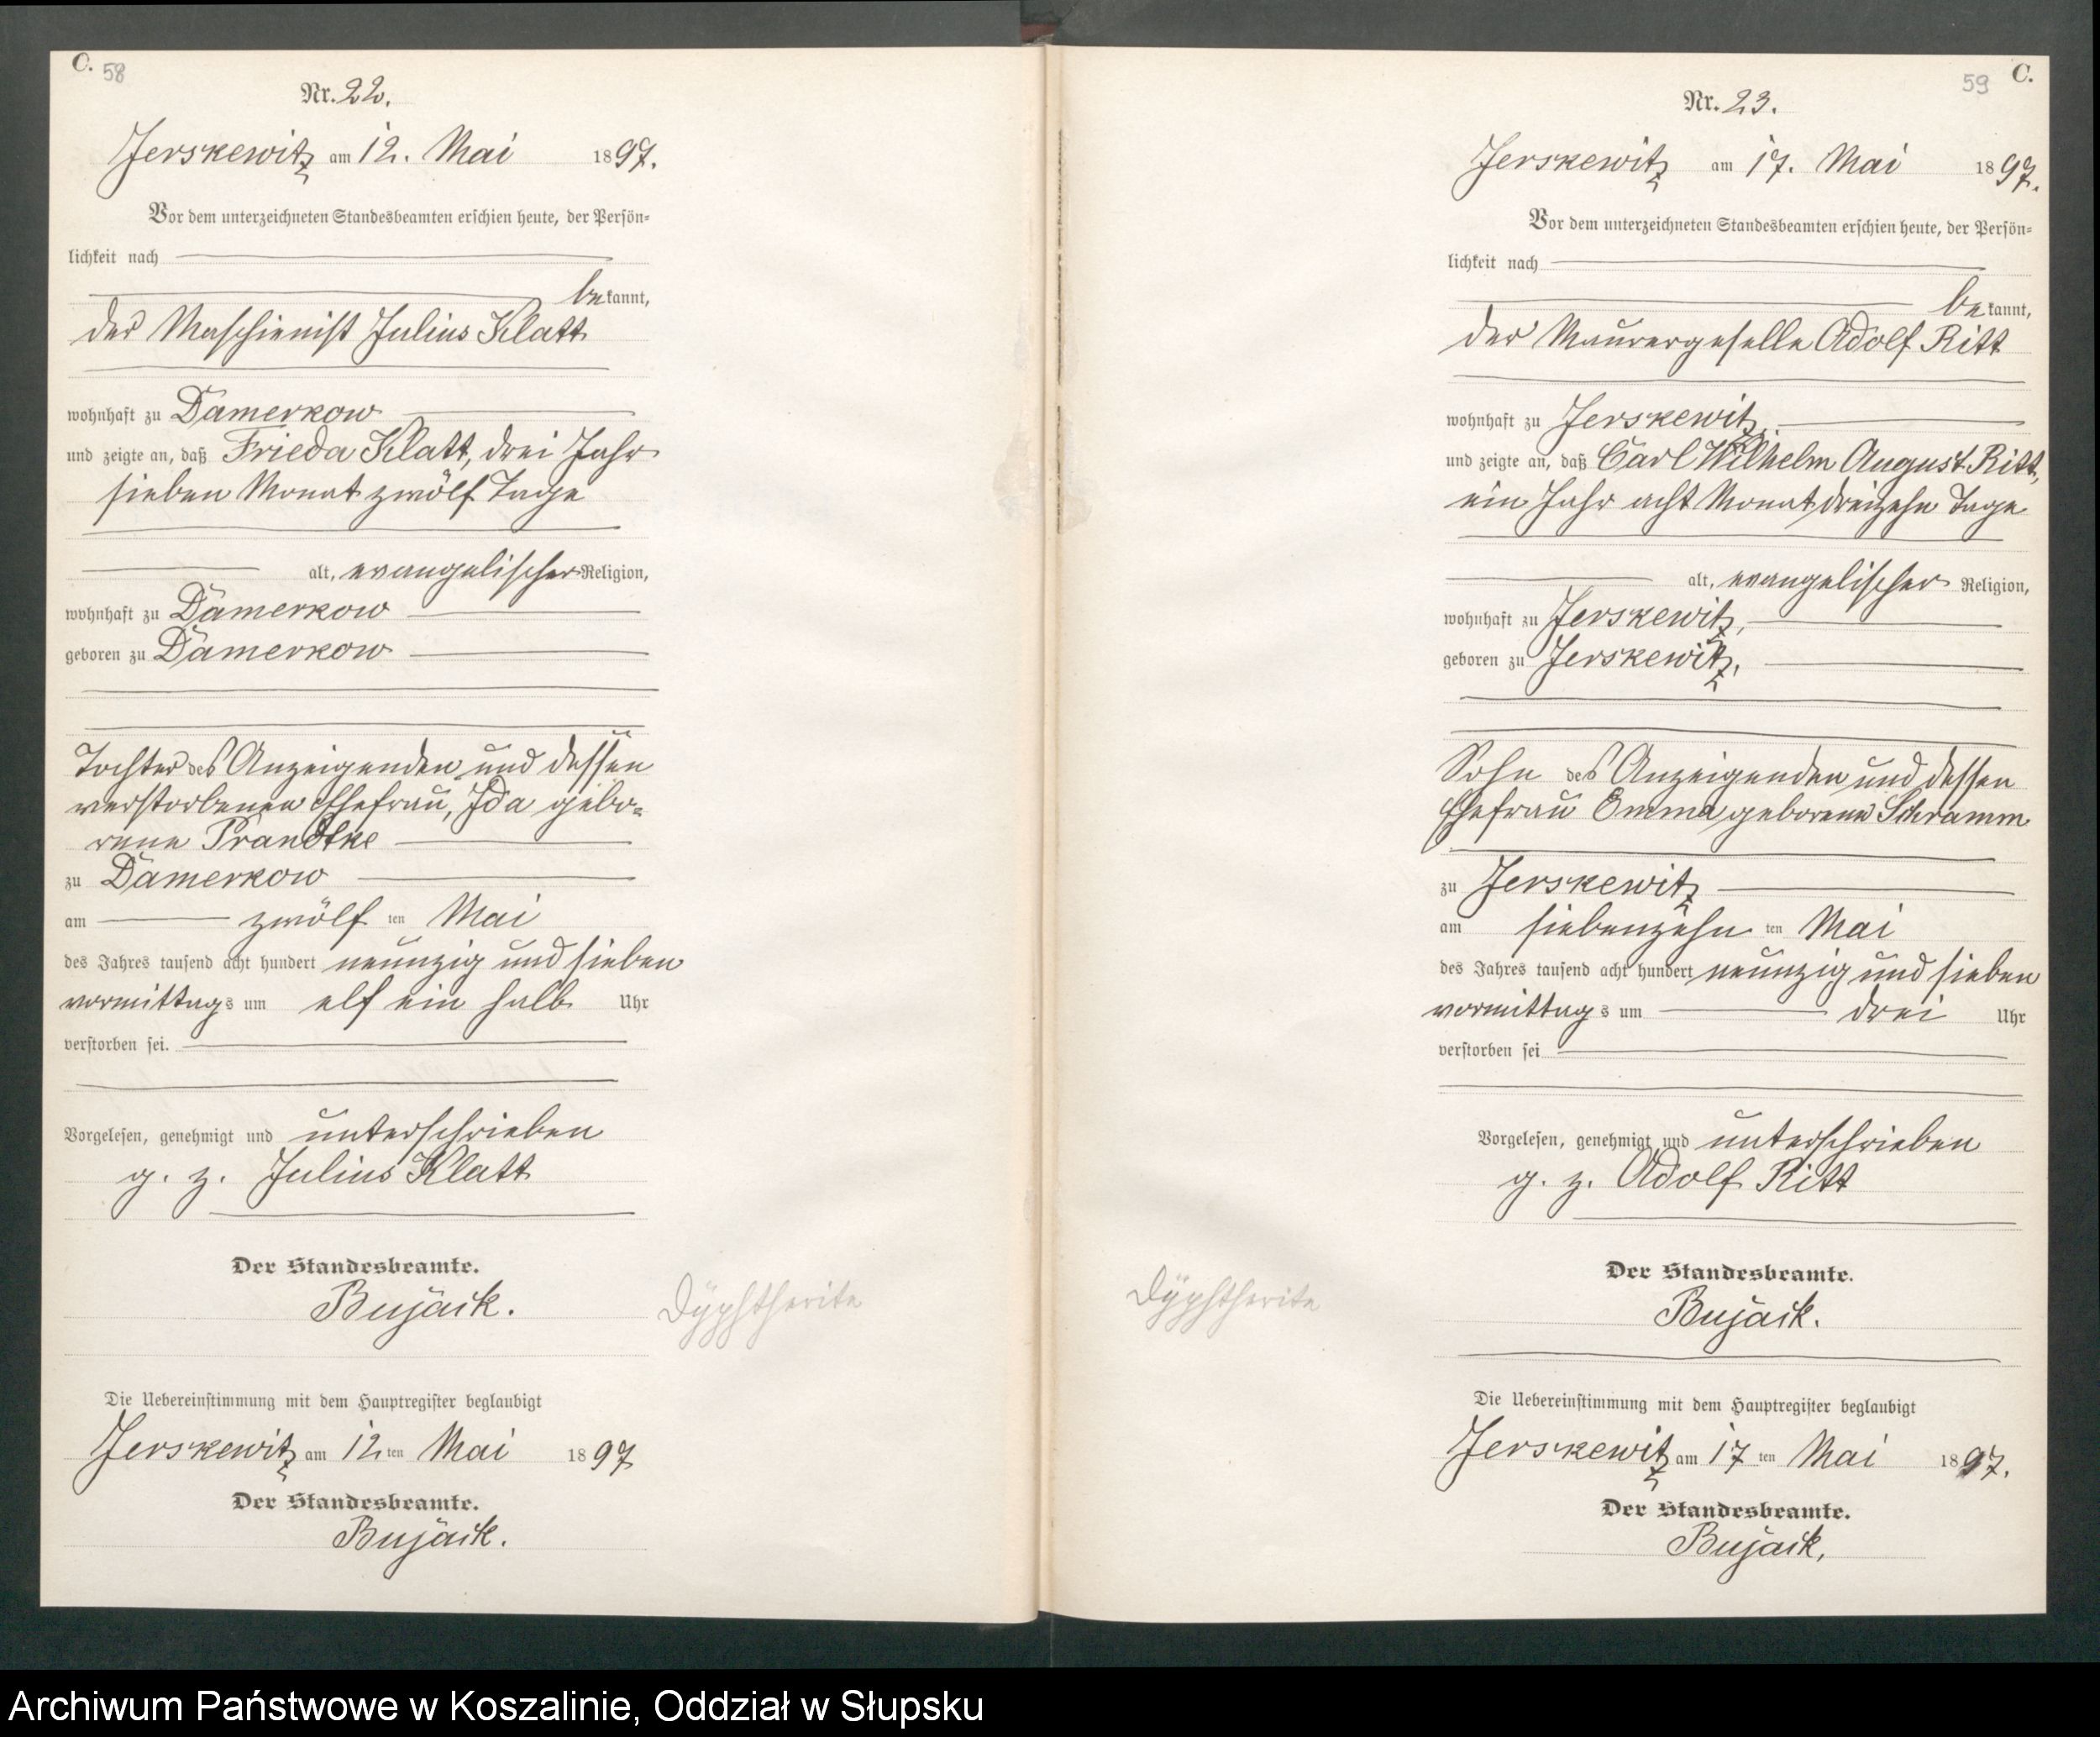 C. 58
Nr. 22.
Jerskewitz am 12. Mai 1897.
Vor dem unterzeichneten Standesbeamten erschien heute, der Persön=
lichkeit nach
bekannt,
der Maschienist Julius Klatt
wohnhaft zu Damerkow
und zeigte an, daß Frieda Klatt, drei Jahr
sieben Monat zwölf Tage
alt, evangelischer Religion,
wohnhaft zu Damerkow
geboren zu Damerkow
Tochter des Anzeigenden und dessen
verstorbenen Ehefrau, Ida gebo=
rene Prandtke
zu Damerkow
am zwölf ten Mai
des Jahres tausend acht hundert neunzig und sieben
vormittags um elf ein halb Uhr
verstorben sei.
Vorgelesen, genehmigt und unterschrieben
g. z. Julius Klatt
Der Standesbeamte.
Bujack.
Dÿphtherite
Die Uebereinstimmung mit dem Hauptregister beglaubigt
Jerskewitz am 12ten Mai 1897
Der Standesbeamte.
Bujack.
59 C.
Nr. 23.
Jerskewitz am 17. Mai 1897.
Vor dem unterzeichneten Standesbeamten erschien heute, der Persön=
lichkeit nach
bekannt,
der Maurergeselle Adolf Ritt
wohnhaft zu Jerskewitz
und zeigte an, daß Carl Wilhelm August Ritt,
ein Jahr acht Monat dreizehn Tage
alt, evangelischer Religion,
wohnhaft zu Jerskewitz,
geboren zu Jerskewitz,
Sohn des Anzeigenden und dessen
Ehefrau Emma geborene Schramm
zu Jerskewitz
am siebenzehn ten Mai
des Jahres tausend acht hundert neunzig und sieben
vormittags um drei Uhr
verstorben sei
Vorgelesen, genehmigt und unterschrieben
g. z. Adolf Ritt
Der Standesbeamte.
Bujack.
Dÿphtherite
Die Uebereinstimmung mit dem Hauptregister beglaubigt
Jerskewitz am 17 ten Mai 1897.
Der Standesbeamte.
Bujack,
Archiwum Państwowe w Koszalinie, Oddział w Słupsku